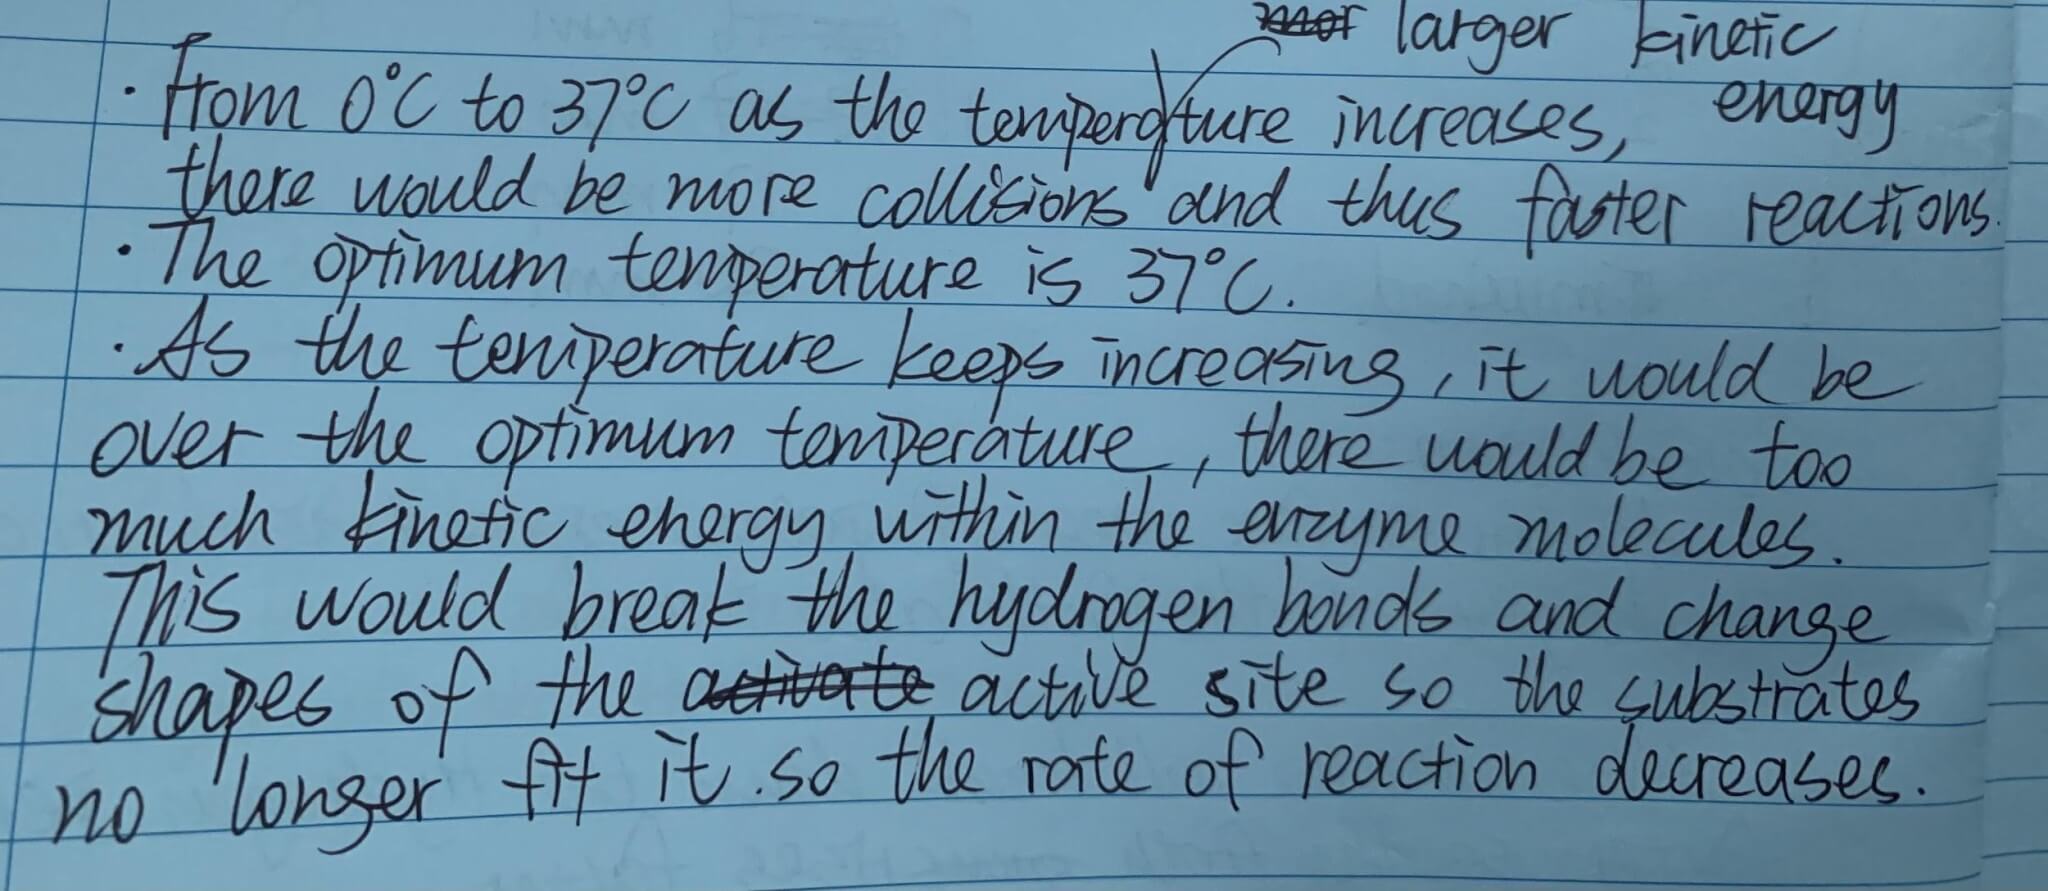 larger kinetic
energy
· From 0°C to 37°C as the temperature increases,
there would be more collisions and thus faster reactions.
· The optimum temperature is 37°C.
· As the temperature keeps increasing, it would be
over the optimum temperature, there would be too
much kinetic energy within the enzyme molecules.
This would break the hydrogen bonds and change
shapes of the activate active site so the substrates
no longer fit it. so the rate of reaction decreases.